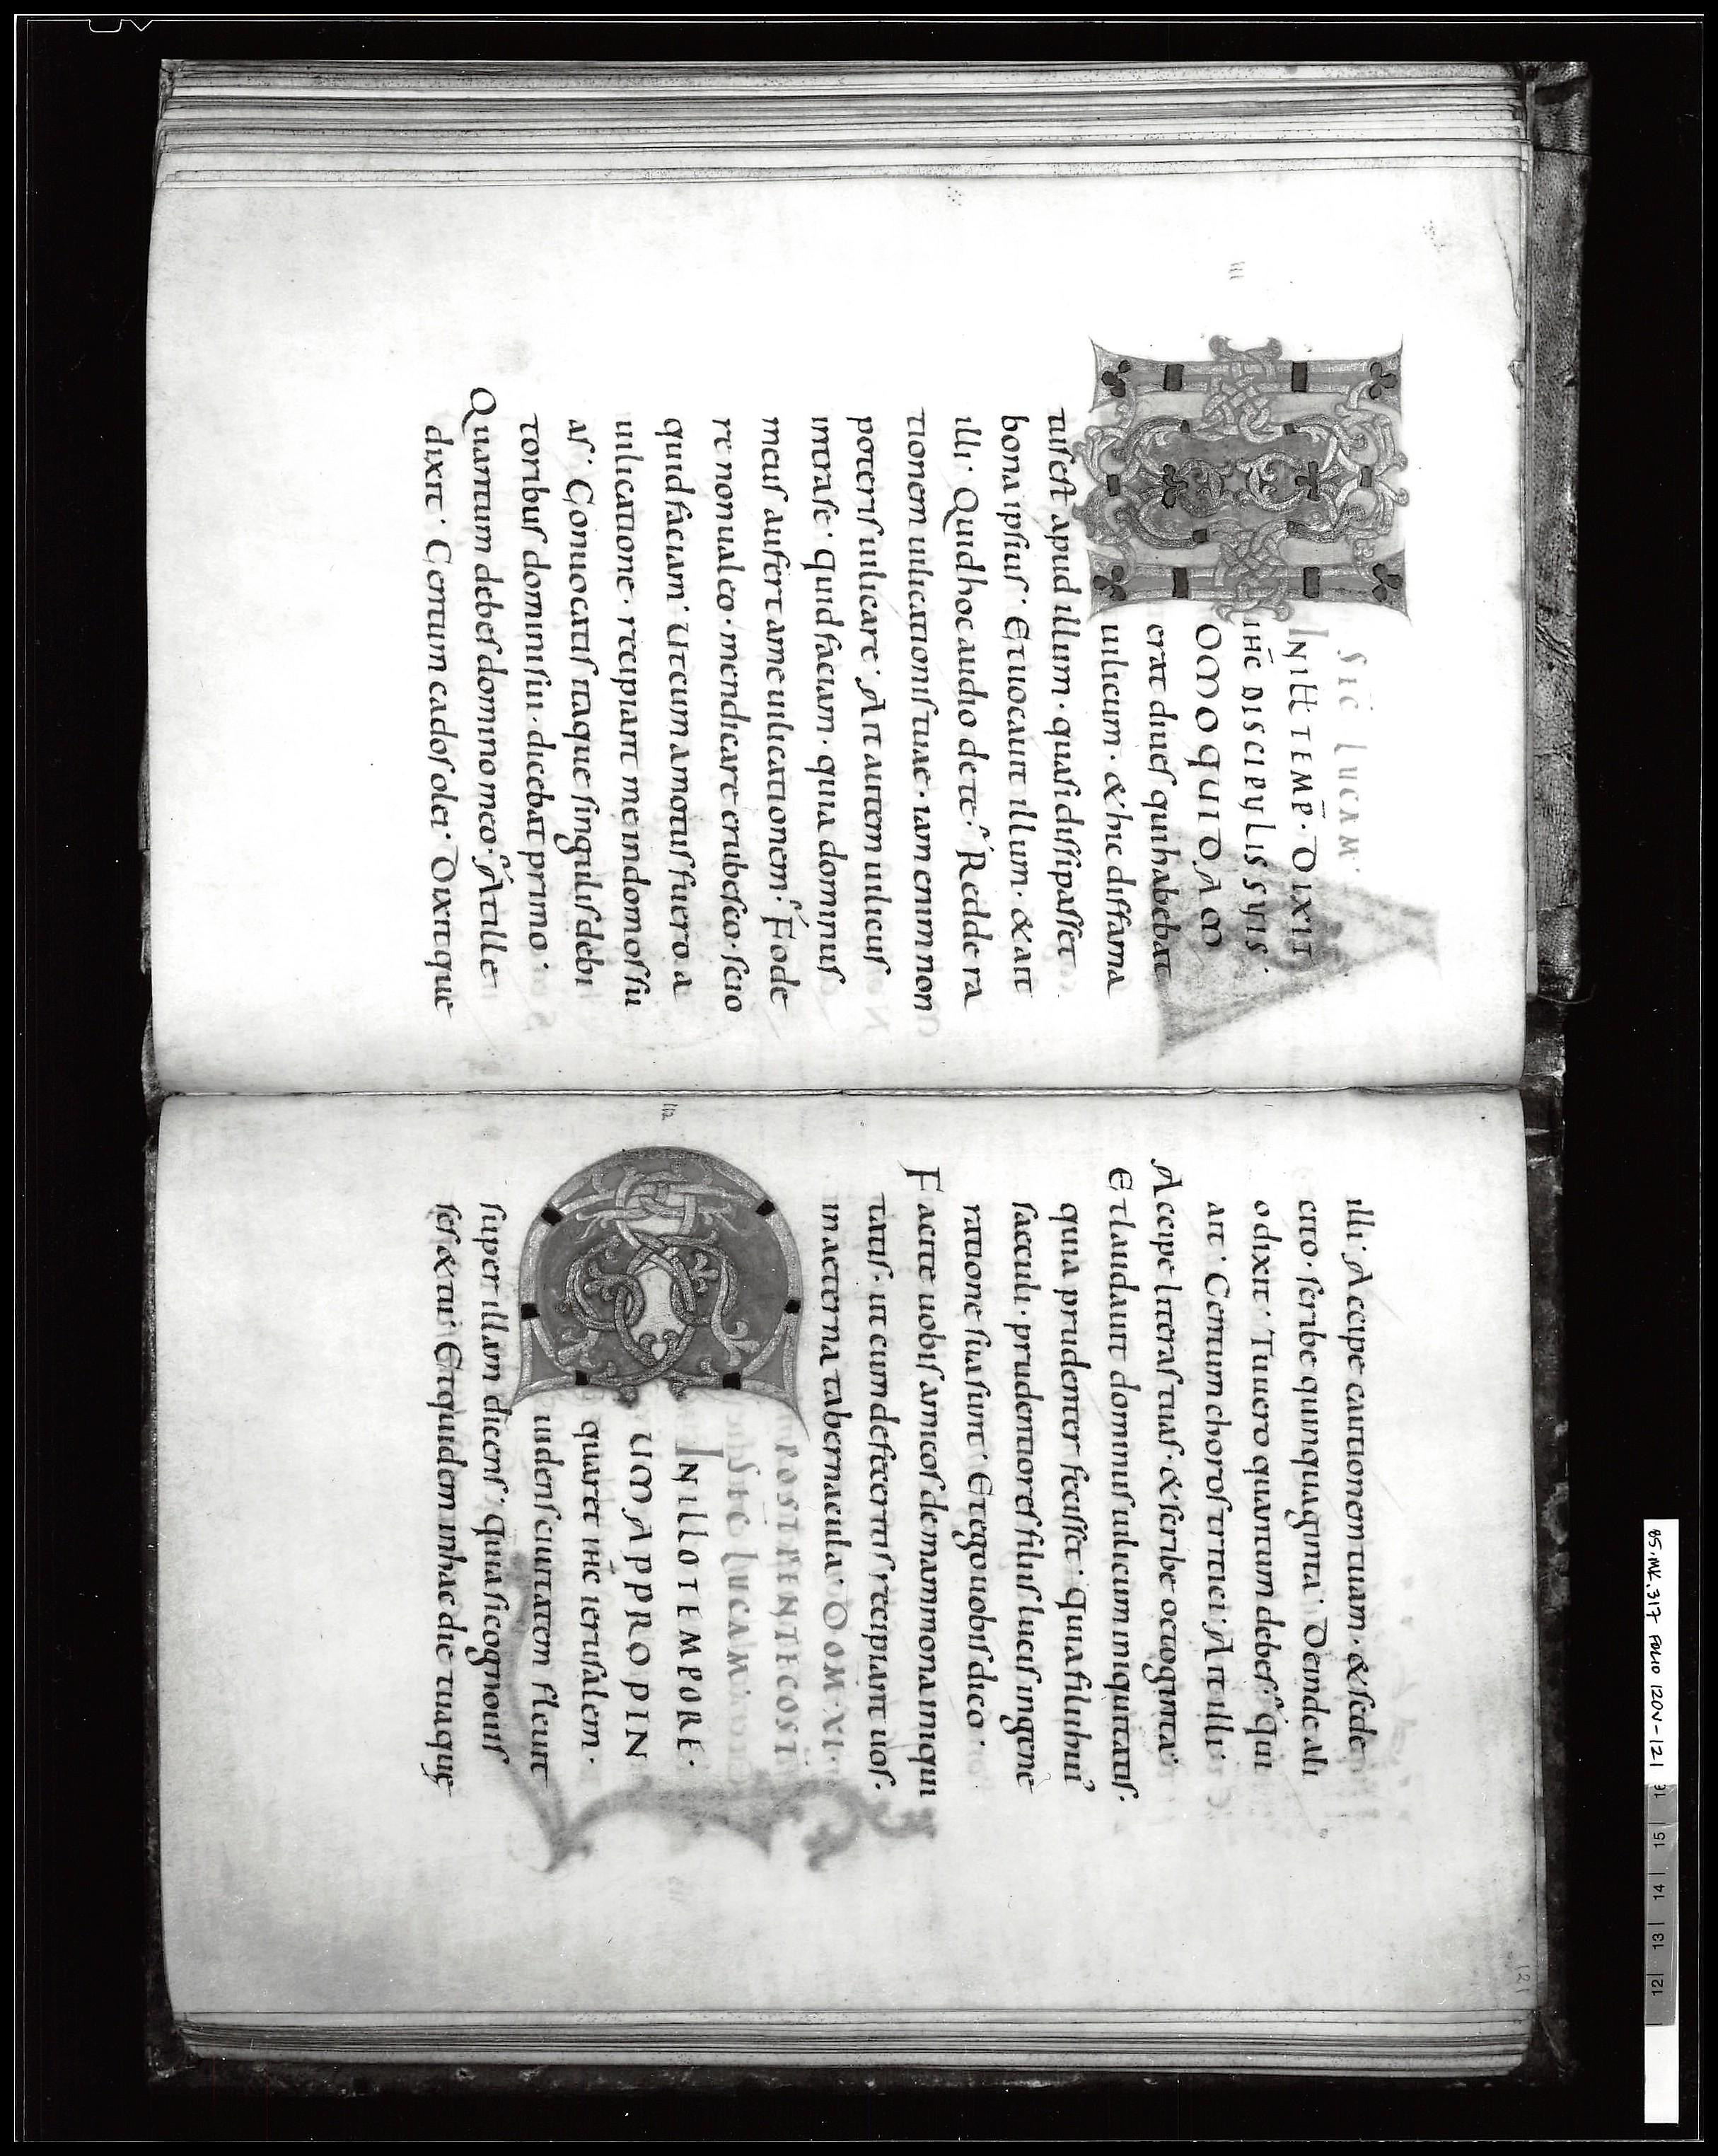 SEC LUCAM.
IN ILL TEMP. DIXIT
IHC DISCIPULIS SUIS.
HOMO QUIDAM
erat diues qui habebat
uilicum. & hic diffama
tus est apud illum. quasi dissipasset
bona ipsius. Et uocauit illum. & ait
illi. Quid hoc audio de te? Redde ra
tionem uilicationis tuae. iam enim non
poteris uilicare. Ait autem uilicus
intra se. quid faciam. quia dominus
meus aufert a me uilicationem? Fode
re non ualeo. mendicare erubesco. scio
quid faciam. Ut cum amotus fuero a
uilicatione. recipiant me in domos su
as. Conuocatis itaque singulis debi
toribus domini sui. dicebat primo.
Quantum debes domino meo? At ille
dixit. Centum cados olei. Dixitque
illi. Accipe cautionem tuam. & sede
cito. scribe quinquaginta. Deinde ali
o dixit. Tu uero quantum debes? Qui
ait. Centum choros tritici. Ait illi.
Accipe literas tuas. & scribe octoginta.
Et laudauit dominus uilicum iniquitatis.
quia prudenter fecisset. Quia filii huius
saeculi. prudentiores filiis lucis in gene
ratione sua sunt. Et ego uobis dico.
Facite uobis amicos de mammona iniqui
tatis. ut cum defeceritis recipiant uos.
in aeterna tabernacula. DOM. XI.
POST PENTECOST
SEC LUCAM
IN ILLO TEMPORE.
CUM APPROPIN
quaret ihc ierusalem.
uidens ciuitatem fleuit
super illam dicens. Quia si cognouis
ses & tu. Et quidem in hac die tua quae
121
85.MK.317 FOLIO 120V-121
12 13 14 15 16